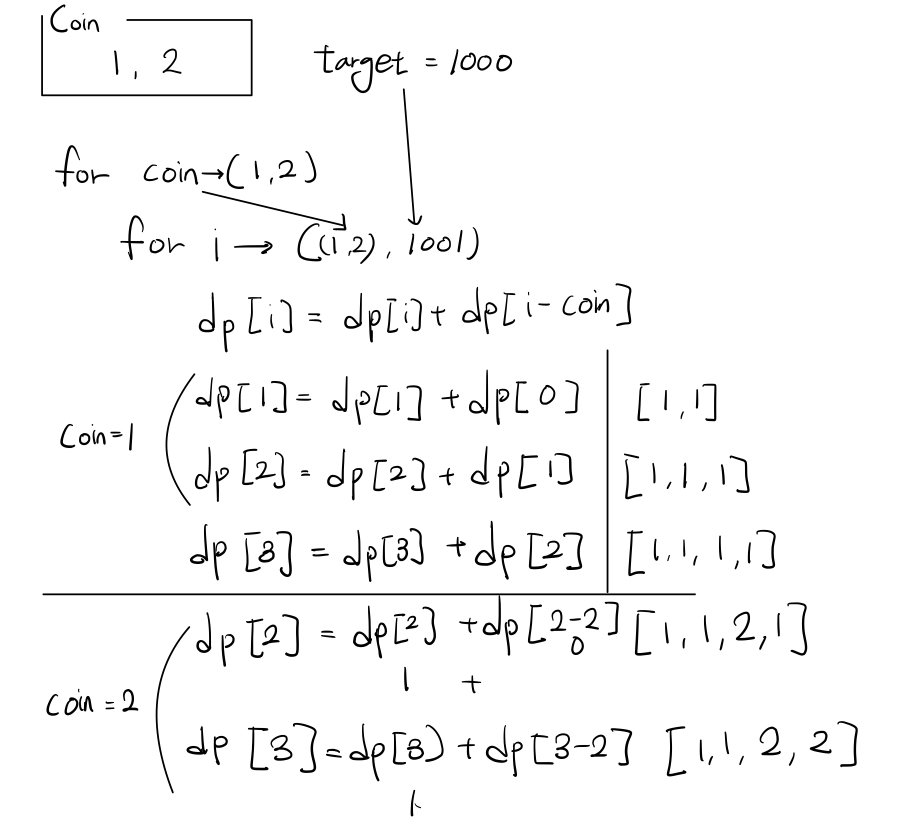 Coin
1, 2
target = 1000
for coin→(1,2)
for i → ((1,2), 1001)
dp[i] = dp[i] + dp[i-coin]
dp[1] = dp[1] + dp[0] [1,1]
Coin=1
dp[2] = dp[2] + dp[1] [1,1,1]
dp[3] = dp[3] + dp[2] [1,1,1,1]
dp[2] = dp[2] + dp[2-2] [1,1,2,1]
0
1 +
Coin=2
dp[3] = dp[3) + dp[3-2] [1,1,2,2]